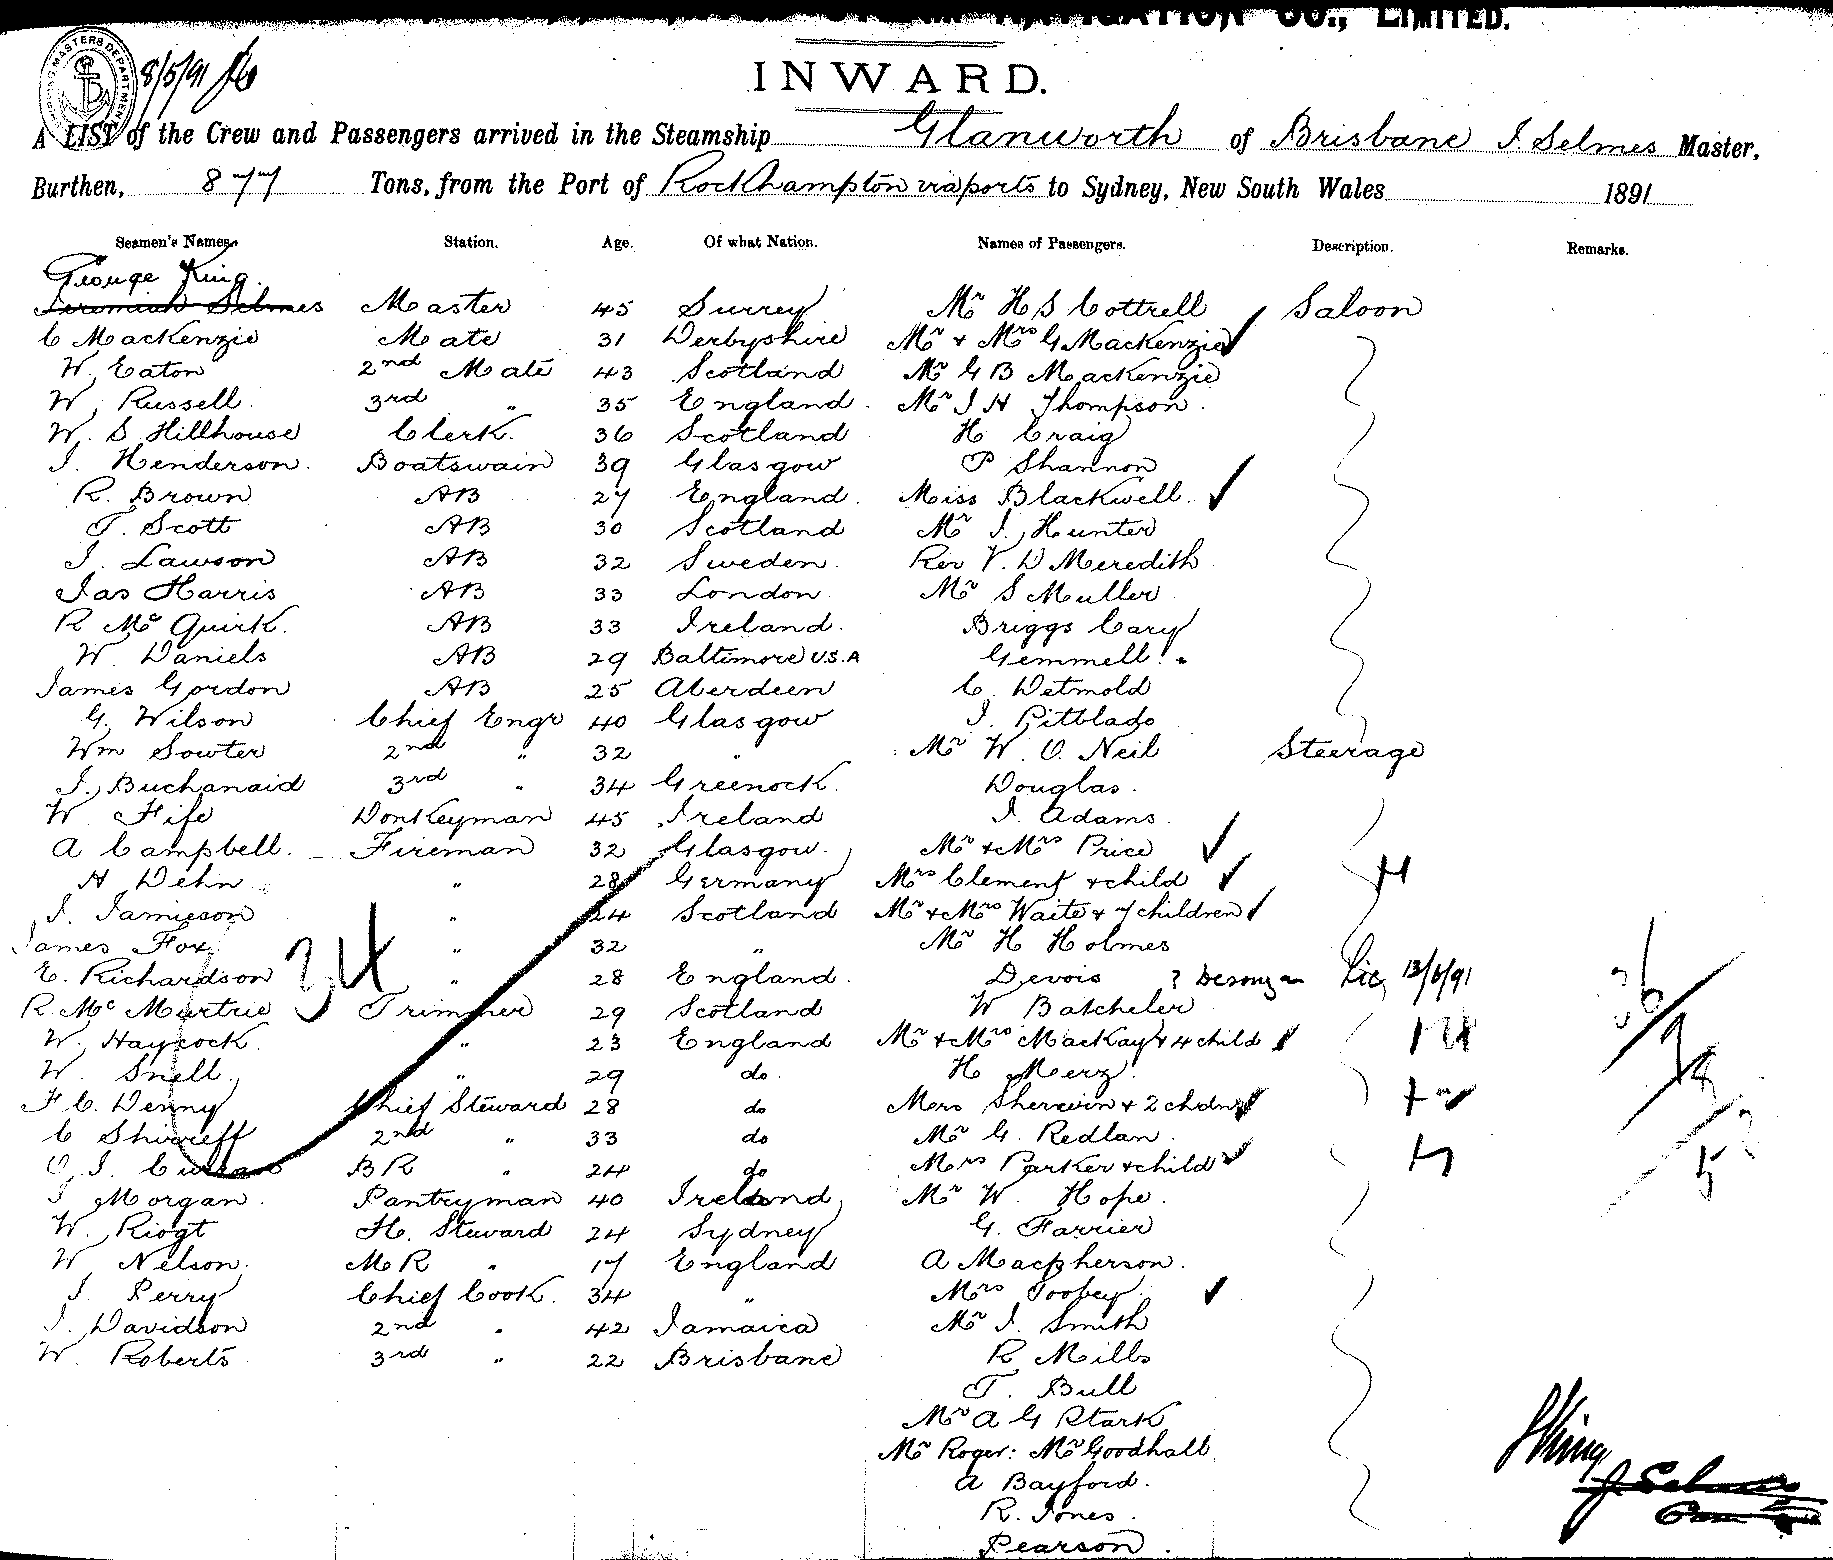 NAVIGATION CO., LIMITED.
8/5/91
INWARD.
A LIST of the Crew and Passengers arrived in the Steamship Glanworth of Brisbane J Selmes Master,
Burthen, 877 Tons, from the Port of Rockhampton via ports to Sydney, New South Wales 1891
Seamen's Names. Station. Age. Of what Nation. Names of Passengers. Description. Remarks.
George King.
Jeremiah Selmes Master 45 Surrey Mr H S Cottrell Saloon
C MacKenzie Mate 31 Derbyshire Mr & Mrs G MacKenzie
W. Eaton 2nd Mate 43 Scotland Mr G B MacKenzie
W. Russell. 3rd " 35 England. Mr J H Thompson.
W. S Hillhouse Clerk. 36 Scotland H Craig
J. Henderson. Boatswain 39 Glasgow P Shannon
R. Brown AB 27 England. Miss Blackwell.
T. Scott AB 30 Scotland Mr J. Hunter
J. Lawson AB 32 Sweden. Rev V. D Meredith
Jas Harris AB 33 London. Mr S Muller.
R Mc Quirk. AB 33 Ireland. Briggs Cary
W. Daniels AB 29 Baltimore U.S.A Gemmell. "
James Gordon AB 25 Aberdeen C. Detmold
G. Wilson Chief Engr 40 Glasgow J. Pitblado
Wm Sowter 2nd " 32 " Mr W. O. Neil Steerage
J. Buchanaid 3rd " 34 Greenock. Douglas.
W. Fife Donkeyman 45 Ireland J. Adams.
A Campbell. Fireman 32 Glasgow. Mr & Mrs Price
H Dehn " 28 Germany Mrs Clement & child
J. Jamieson " 24 Scotland Mr & Mrs Waite & 7 children
James Fox " 32 " Mr H Holmes
E. Richardson 34 " 28 England. Devois Lic 13/6/91
R. Mc Murtrie Trimmer 29 Scotland W Batcheler
W. Haycock. " 23 England Mr & Mrs MacKay & 4 child 14
W. Snell. " 29 do. H Merz.
F C. Denny Chief Steward 28 do Mrs Sherewin & 2 chdn
C Shirreff 2nd " 33 do Mr G. Redlan.
O. J. Curran BR " 24 do Mrs Parker & child
J Morgan. Pantryman 40 Ireland Mr W. Hope.
W. Riogt H. Steward 24 Sydney G. Farrier
W Nelson. MR " 17 England A Macpherson.
J. Perry Chief Cook. 34 " Mrs Toobey.
J. Davidson 2nd " 42 Jamaica Mr J. Smith
W. Roberts 3rd " 22 Brisbane R Mills
T. Bull
Mr A G Stark
Mr Roger: Mr Goodhall
A Bayford.
R. Jones.
Pearson.
G King
J Selmes